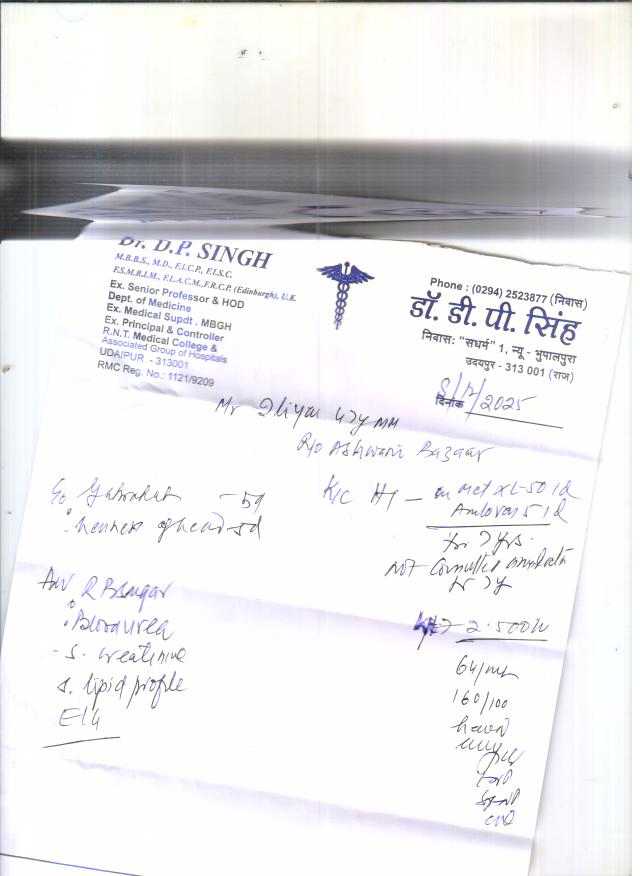 Dr. D.P. SINGH
M.B.B.S., M.D., F.I.C.P., F.I.S.C.
F.S.M.R.I.M., F.I.A.C.M., F.R.C.P. (Edinburgh), U.K
Ex. Senior Professor & HOD
Dept. of Medicine
Ex. Medical Supdt . MBGH
Ex. Principal & Controller
R.N.T. Medical College &
Associated Group of Hospitals
UDAIPUR - 313001
RMC Reg. No.: 1121/9209
Phone : (0294) 2523877 (निवास)
डॉ. डी. पी. सिंह
निवास: "सधर्म" 1, न्यू - भुपालपुरा
उदयपुर - 313 001 (राज)
दिनांक 8/12/2025
Mr
R/o Ashwani Bazaar
- 5d
heaviness of head - 5d
K/C HT - on Met XL-50 1d
5 1d
for 7 yrs.
not consulted
for
Adv R B Sugar
Blood urea
- S. creatinine
S. lipid profile
64/mt
160/100